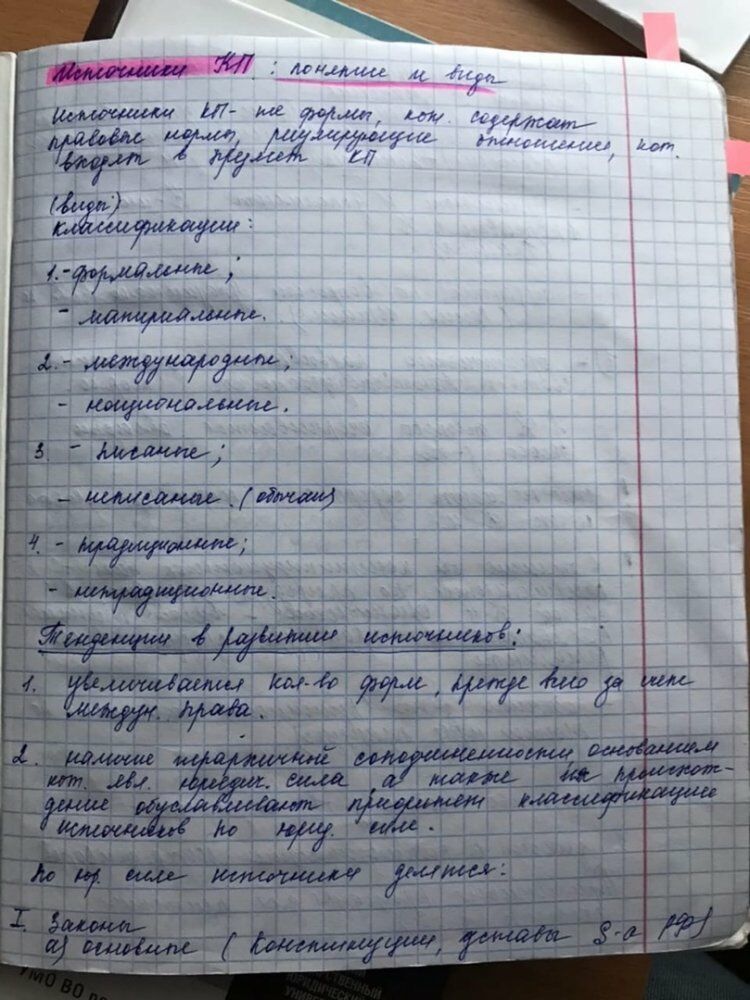 Источники КП: понятие и виды
Источники КП - те формы, кот. содержат
правовые нормы, регулирующие отношение, кот.
входят в предмет КП
(виды)
Классификации:
1. - формальные;
- матириальные.
2. - международные;
- национальные.
3. - писаные;
- неписаные. (обычаи)
4. - традиционные;
- нетрадиционные.
Тенденции в развитии источников:
1. увеличивается кол-во форм, прежде всего за счет
междун. права.
2. наличие иерархичной соподчиненности основанием
кот. явл. юридич. сила, а также их происхож-
дение обуславливают приоритет классификации
источников по юрид. силе.
По юр. силе источники делятся:
I. Законы
а) основные (Конституции, уставы S-а РФ)
УМО ВО
ЮРИДИЧЕСКИ
УНИВЕР